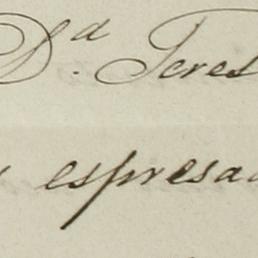 D.ª Teres
espresad